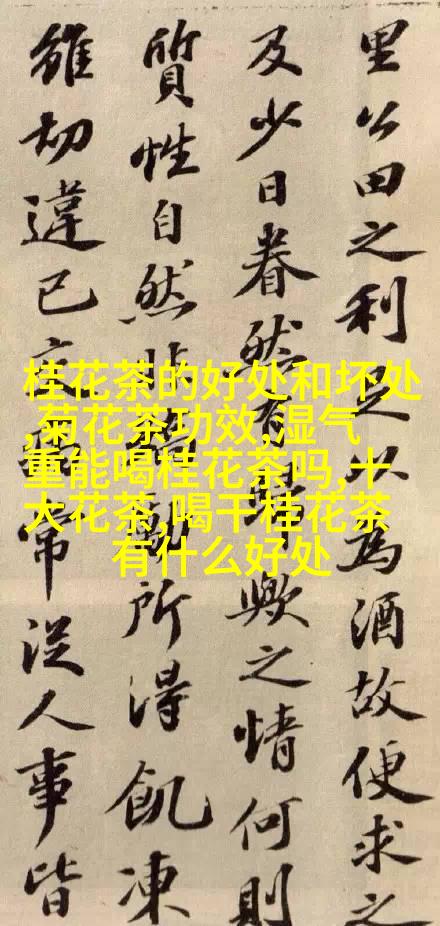 里公田之利足以為酒故便求之
及少日眷然有歸歟之情何則
質性自然非矯勵所得飢凍
雖切違己交病常從人事皆
桂花茶的好处和坏处
,菊花茶功效,湿气
重能喝桂花茶吗,十
大花茶,喝干桂花茶
有什么好处